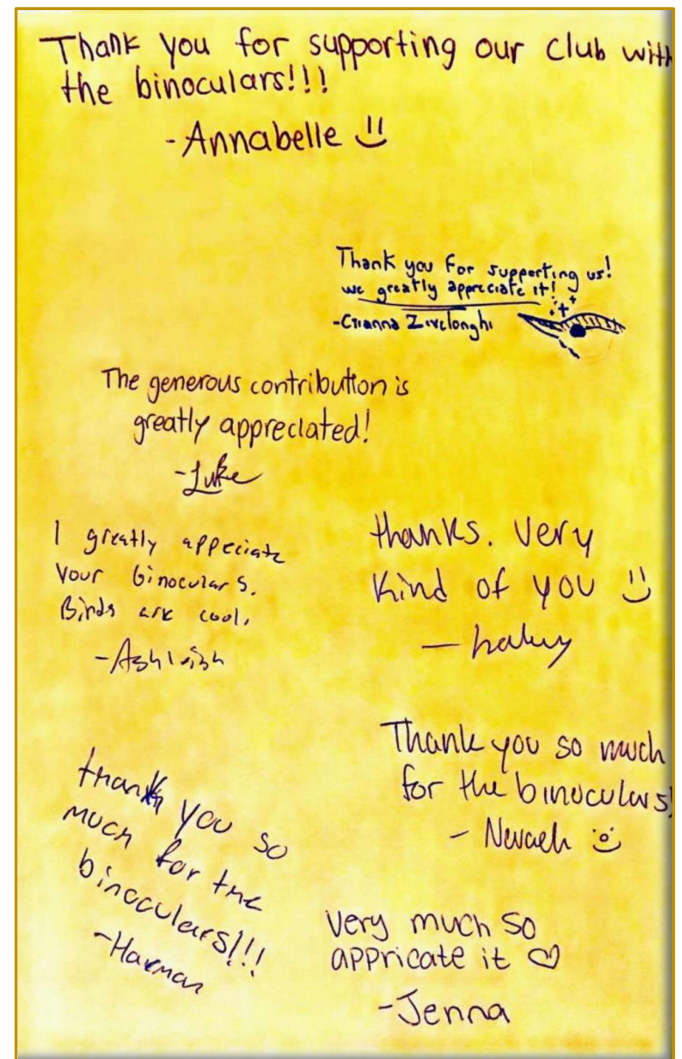 Thank you for supporting our club with
the binoculars!!!
-Annabelle
Thank you for supporting us!
we greatly appreciate it!
-Gianna Zivelonghi
The generous contribution is
greatly appreciated!
-Luke
I greatly appeciate
your binoculars.
Birds are cool.
thanks. Very
kind of you
Thank you so much
for the binoculars!
- Nevaeh
thank you so
much for the
binoculars!!!
-Harman
Very much so
appricate it
-Jenna